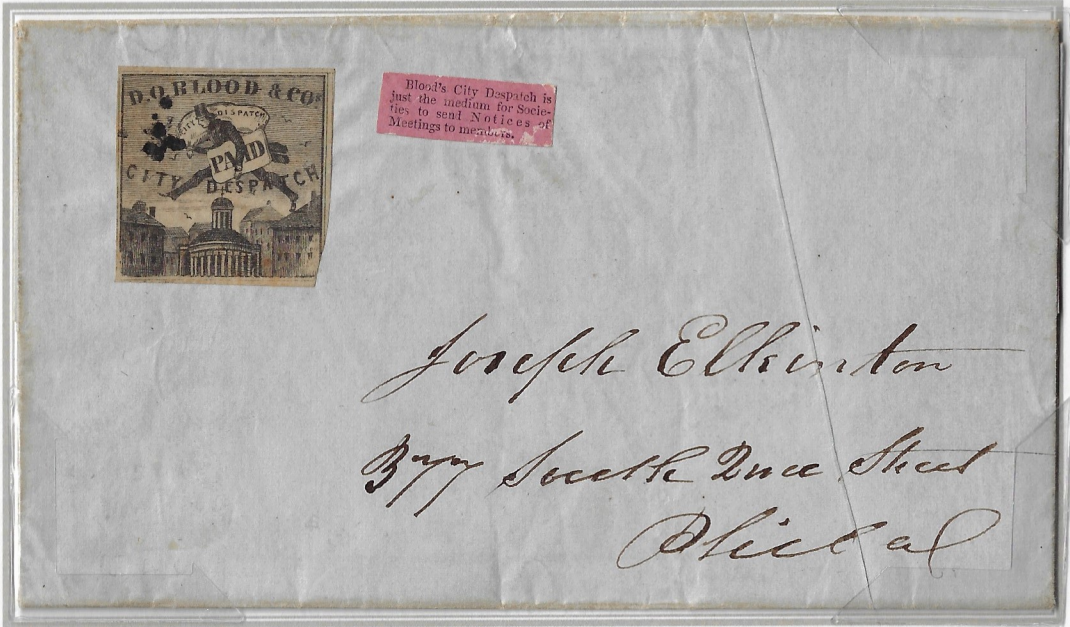 D.O. BLOOD & CO'S
CITY DESPATCH
PAID
CITY DESPATCH
Blood's City Despatch is
just the medium for Socie-
ties to send Notices of
Meetings to members.
Joseph Elkinton
377 South 2nd Street
Philad